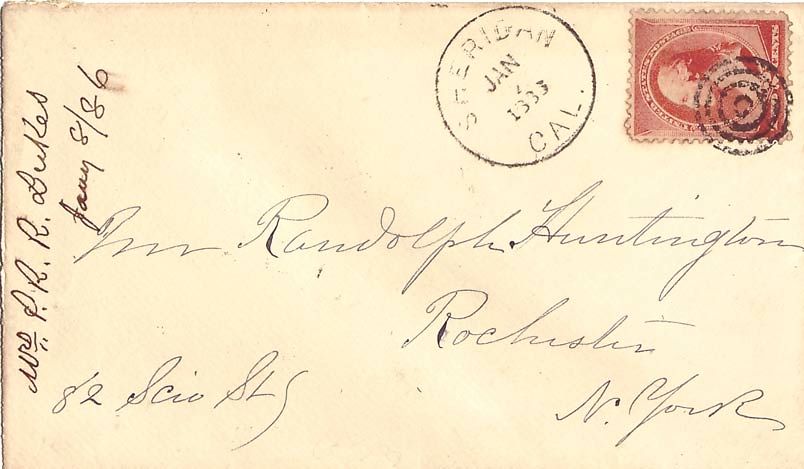 SHERIDAN
JAN
CAL.
Mrs. P. R. R. Dukes
Jany 8/86
Randolph Huntington
Rochester
N. York
82 Scio St